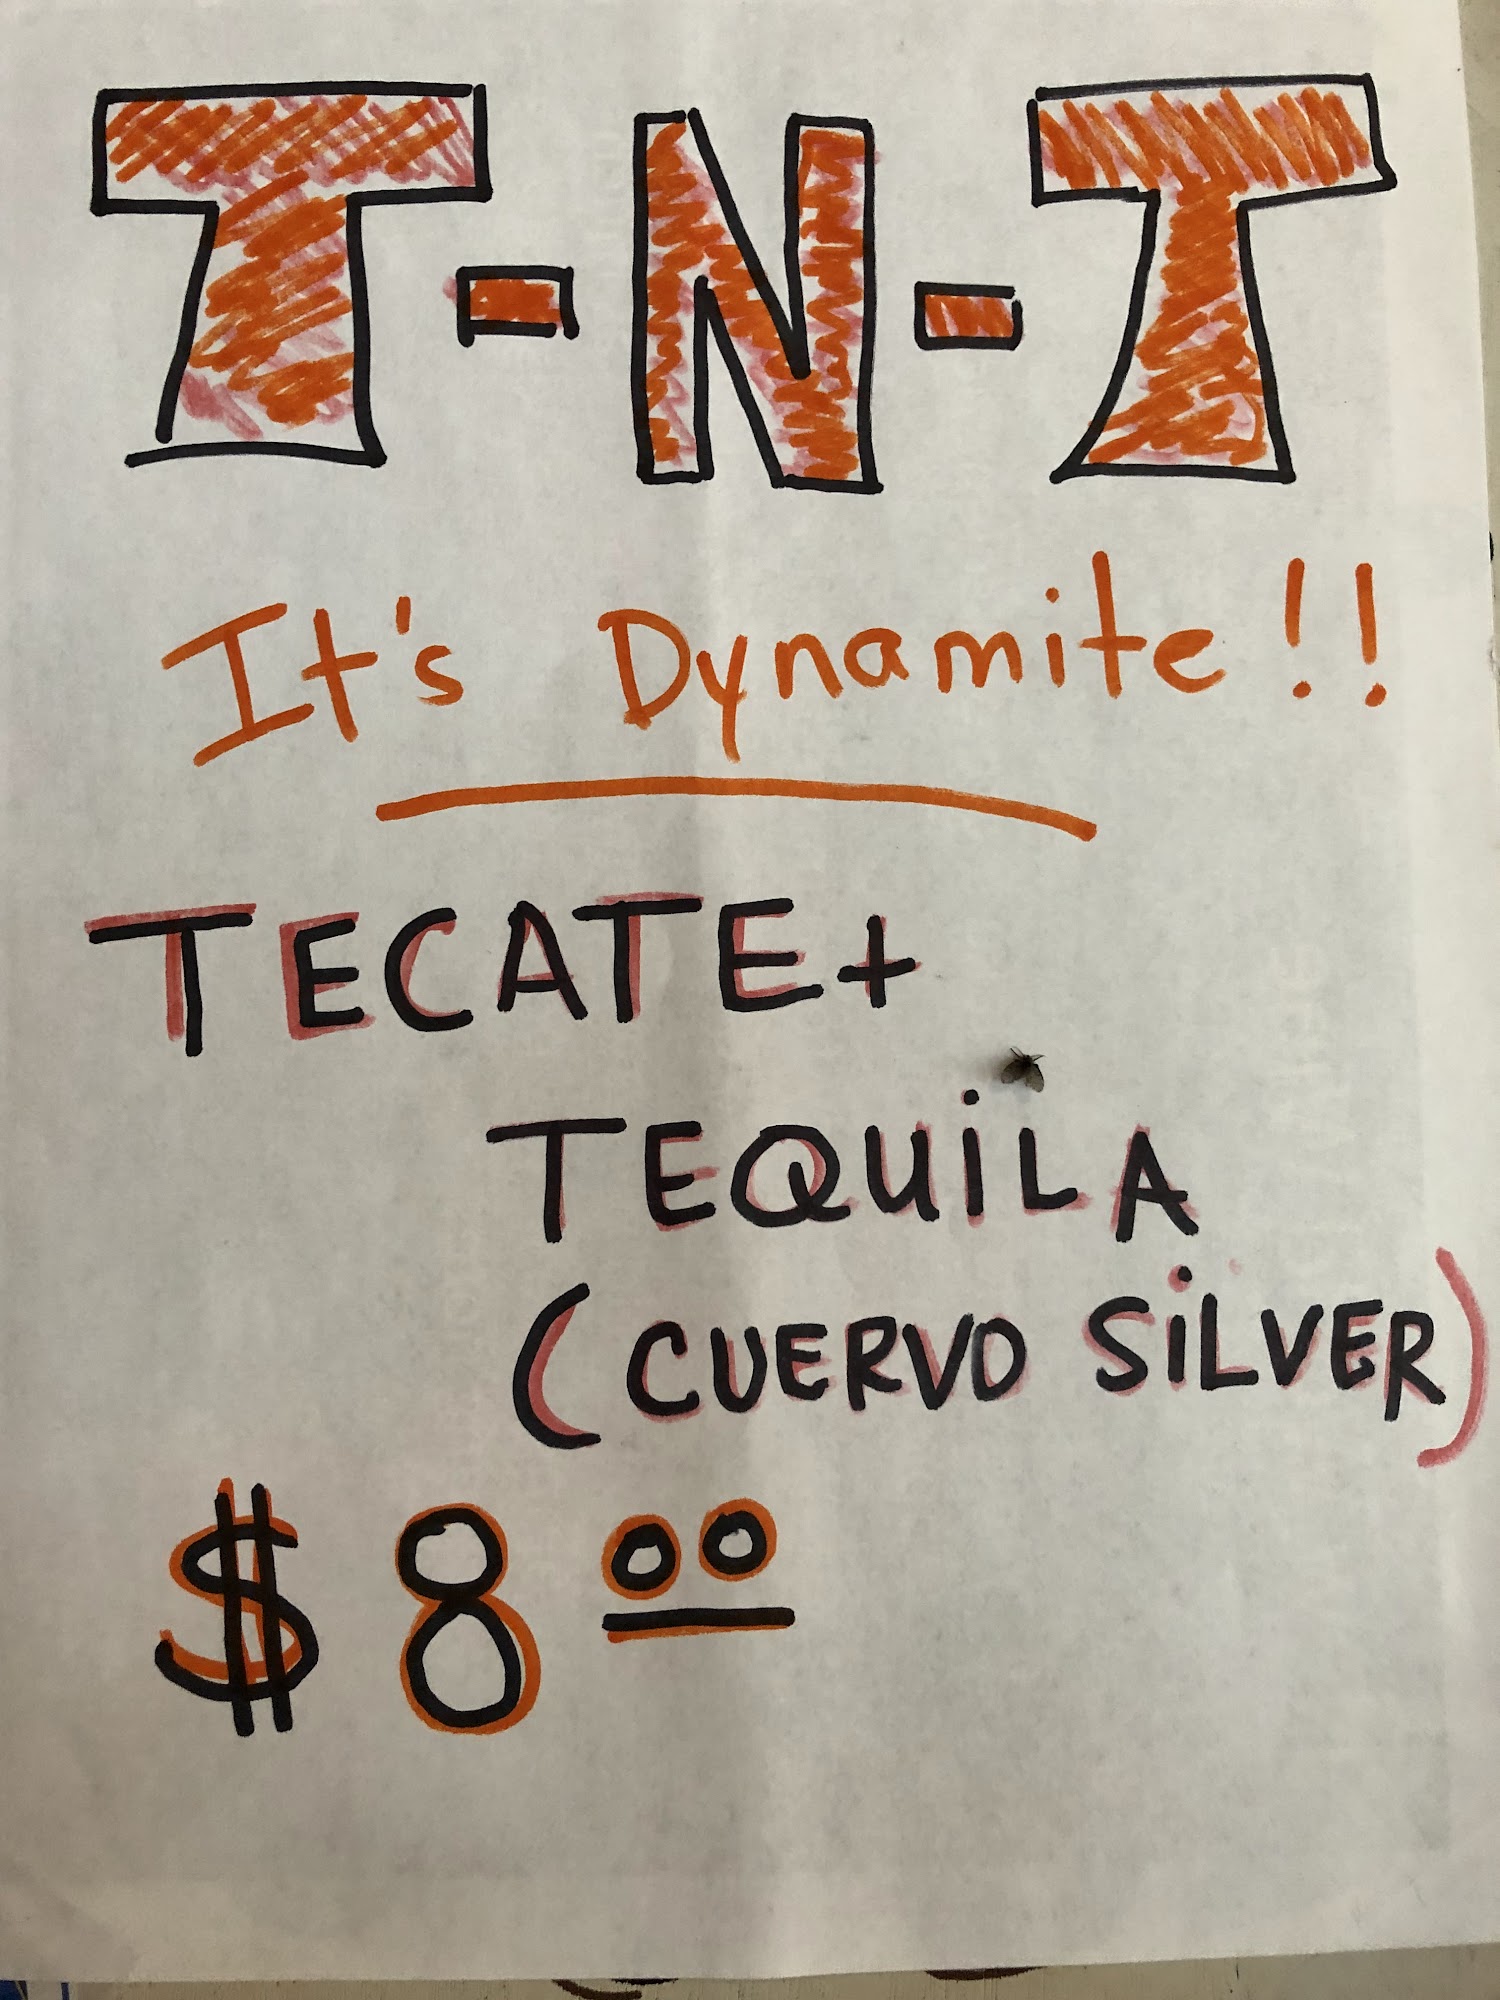 T-N-T
It's Dynamite!!
TECATE+
TEQUiLA
(CUERVO SiLVER)
$8.00